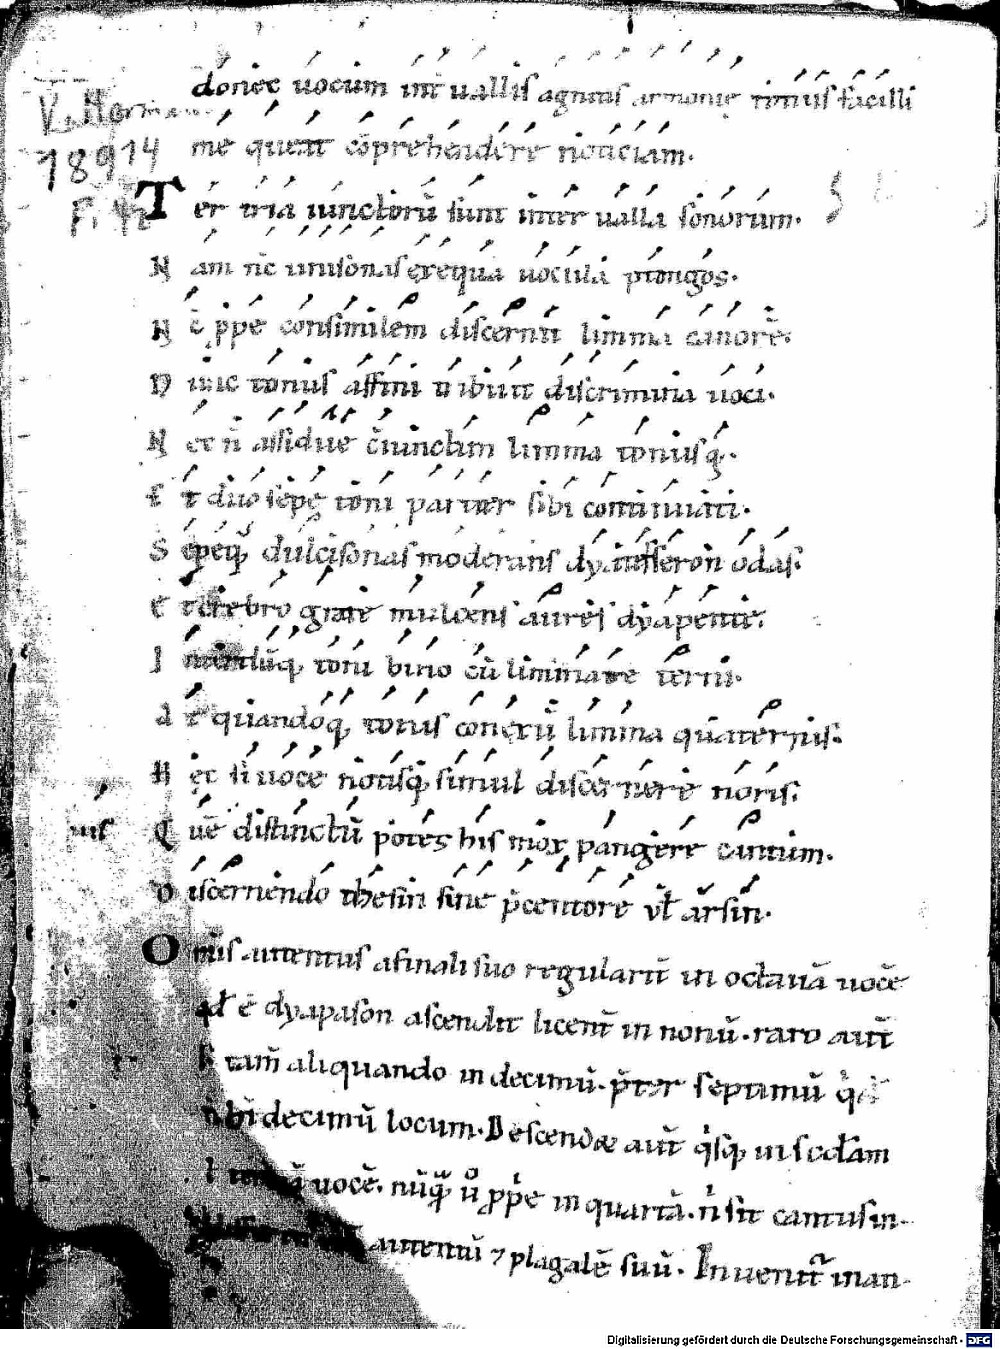 donec uocum int uallis agnitis armonie rimis facilli
me queat cōprehendere noticiam.
V. Herman
18914
F. 42
Ter tria iunctorū sunt inter ualla sonorum.
Nam nc unisonas exequa uocula ptongos.
Nc ppe consimilem discernit limma canorē.
Nunc tonus affini tribuit discrimina uoci.
Nec n̄ assidue c̄iunctim limma tonusq;
Et duo sepe toni pariter sibi continuati.
Sepeq; dulcisonas moderans dyatesseron odas.
Et crebro grate mulcens aures dyapente.
Interdūq; toni bino cū limmate terni.
At quandoq; tonus conexū limma quaternis.
Hec si uoce notisq; simul discernere noris.
Que distinctū potes his mox pangere cantum.
Discernendo thesin sine p̄centore uł arsin.
Omnis autentus a finali suo regularit̄ in octauā uocē
id ē dyapason ascendit licent̄ in nonū. raro aut̄
tam̄ aliquando in decimū. p̄ter septimū
decimū locum. Descendæ aut̄ q̇sq; uisc̄dam
uocē. nūq̃ ů ppe in quartā. ni sit cantus in-
autentū ⁊ plagalē suū. Inuenit̄ inan-
Digitalisierung gefördert durch die Deutsche Forschungsgemeinschaft - DFG